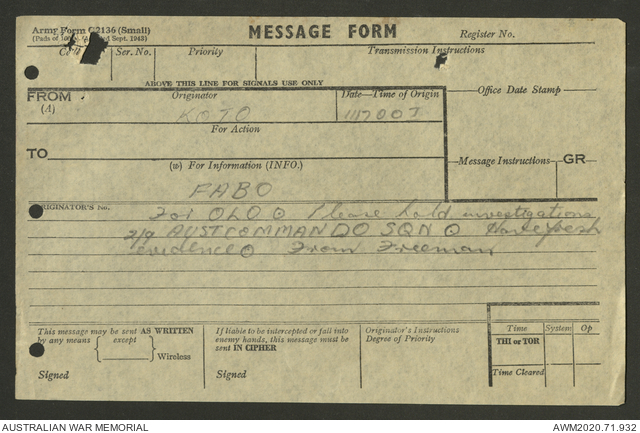 Army Form C2136 (Small)
(Pads of 100) Sept. 1943)
MESSAGE FORM
Register No.
Ser. No.
Priority
Transmission Instructions
ABOVE THIS LINE FOR SIGNALS USE ONLY
FROM
(A)
Originator
Date-Time of Origin
Office Date Stamp
KOJO
111700I
For Action
TO
(W) For Information (INFO.)
Message Instructions
GR
FABO
ORIGINATOR'S No.
For OLO O Please hold investigations
2/9 AUST COMMANDO SQN O Have fresh
evidence O From Freeman
This message may be sent AS WRITTEN
by any means except
Wireless
Signed
If liable to be intercepted or fall into
enemy hands, this message must be
sent IN CIPHER
Signed
Originator's Instructions
Degree of Priority
Time
System
Op
THI or TOR
Time Cleared
AUSTRALIAN WAR MEMORIAL
AWM2020.71.932